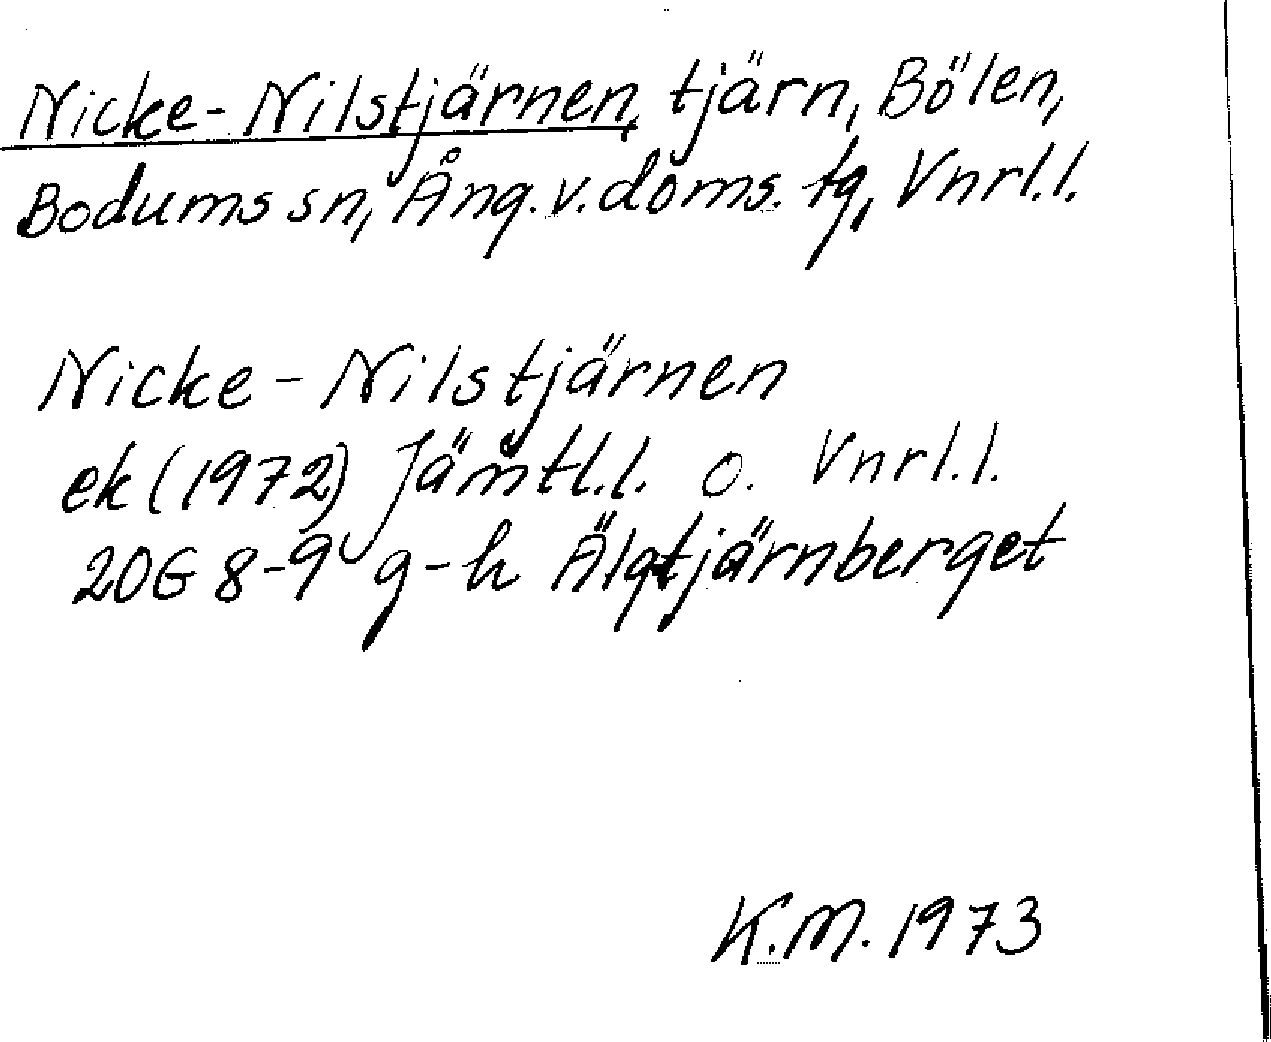 Nicke-Nilstjärnen, tjärn, Bölen,
Bodums sn, Ång. v. doms. tg, Vnrl.l.
Nicke-Nilstjärnen
ek (1972) Jämtl.l. o. Vnrl.l.
20G 8-9 g-h Älgtjärnberget
K.M. 1973